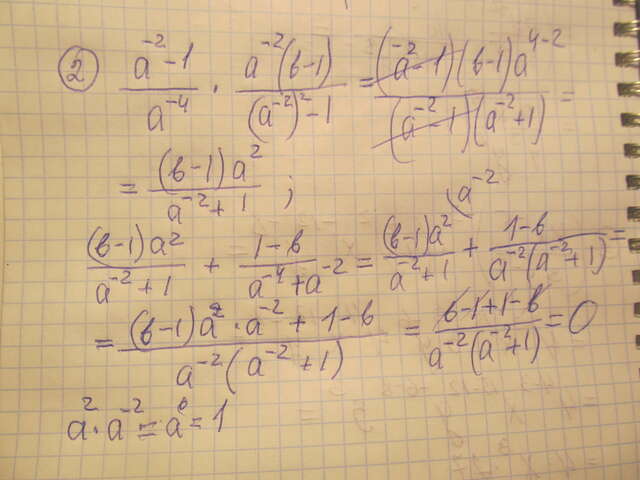 ② (a⁻² - 1)/a⁻⁴ · a⁻²(в-1)/((a⁻²)² - 1) = (a⁻² - 1)(в-1)a⁴⁻²/((a⁻² - 1)(a⁻² + 1)) =
= (в-1)a²/(a⁻² + 1) ;
a⁻²
(в-1)a²/(a⁻² + 1) + (1-в)/(a⁻⁴ + a⁻²) = (в-1)a²/(a⁻² + 1) + (1-в)/(a⁻²(a⁻² + 1)) =
= ((в-1)a² · a⁻² + 1-в)/(a⁻²(a⁻² + 1)) = (в-1+1-в)/(a⁻²(a⁻² + 1)) = 0
a² · a⁻² = a⁰ = 1